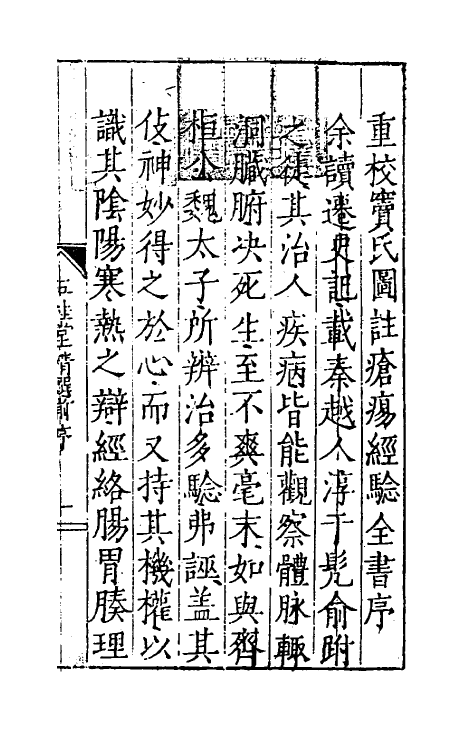 重校竇氏圖註瘡瘍經驗全書序
余讀遷史記載秦越人淳于髡俞跗
之徒其治人疾病皆能觀察體脉輙
洞臟腑决死生至不爽毫末如與齊
桓公魏太子所辨治多驗弗誣盖其
伎神妙得之於心而又持其機權以
識其陰陽寒熱之辯經絡腸胃腠理